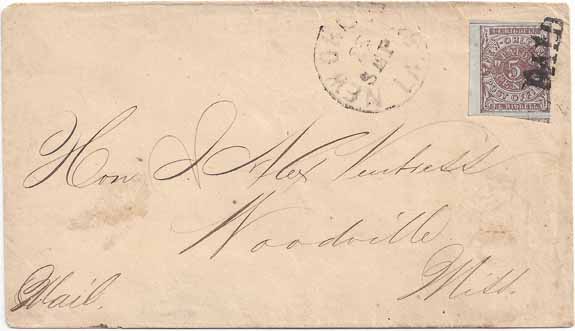 NEW ORLEANS LA
SEP
PAID
J. L. RIDDELL
5
POST OFFICE
Hon J. Alex Ventress
Woodville
Miss.
Mail.